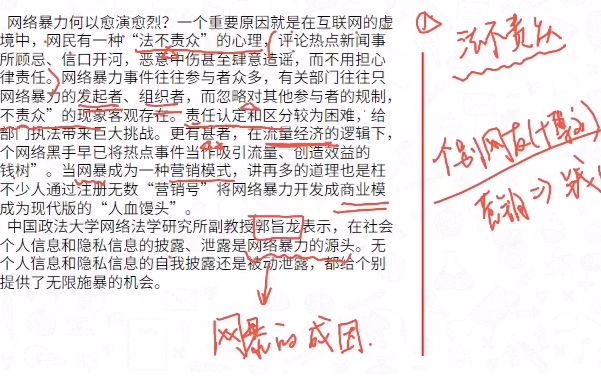 网络暴力何以愈演愈烈？一个重要原因就是在互联网的虚
境中，网民有一种“法不责众”的心理，评论热点新闻事
所顾忌、信口开河，恶意中伤甚至肆意造谣，而不用担心
律责任。网络暴力事件往往参与者众多，有关部门往往只
网络暴力的发起者、组织者，而忽略对其他参与者的规制，
不责众”的现象客观存在。责任认定和区分较为困难，给
部门执法带来巨大挑战。更有甚者，在流量经济的逻辑下，
个网络黑手早已将热点事件当作吸引流量、创造效益的
钱树”。当网暴成为一种营销模式，讲再多的道理也是枉
不少人通过注册无数“营销号”将网络暴力开发成商业模
成为现代版的“人血馒头”。
中国政法大学网络法学研究所副教授郭旨龙表示，在社会
个人信息和隐私信息的披露、泄露是网络暴力的源头。无
个人信息和隐私信息的自我披露还是被动泄露，都给个别
提供了无限施暴的机会。
网暴的成因.
①
法不责众
个别网友
营销⇒